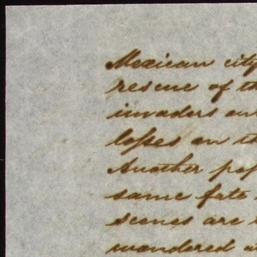 Mexican city
rescue of th
invaders an
losses on th
Another pap
same fate
scenes are
wondered a